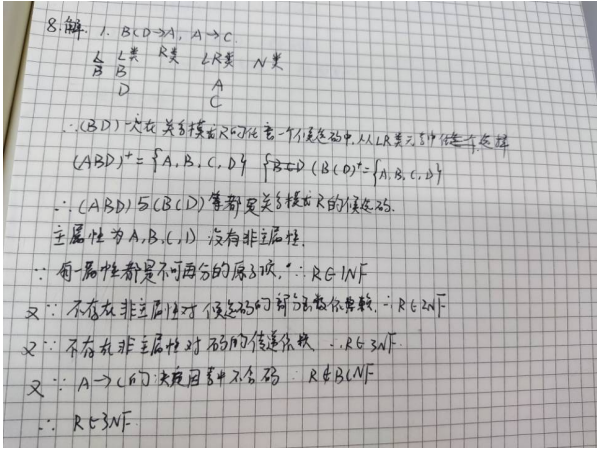 8.解. 1. BCD→A, A→C
L L类 R类 LR类 N类
B B
D A
C
∴(BD)一定在关系模式R的任意一个候选码中,从LR类元素中选择
(ABD)⁺={A,B,C,D} (BCD)⁺={A,B,C,D}
∴(ABD)与(BCD)等都是关系模式R的候选码.
主属性为A,B,C,D 没有非主属性.
∵ 每一属性都是不可再分的原子项,∴R∈1NF
又∵ 不存在非主属性对候选码的部分函数依赖,∴R∈2NF
又∵ 不存在非主属性对码的传递依赖 ∴R∈3NF.
又∵ A→C的决定因素中不含码 ∴R∉BCNF
∴ R∈3NF.